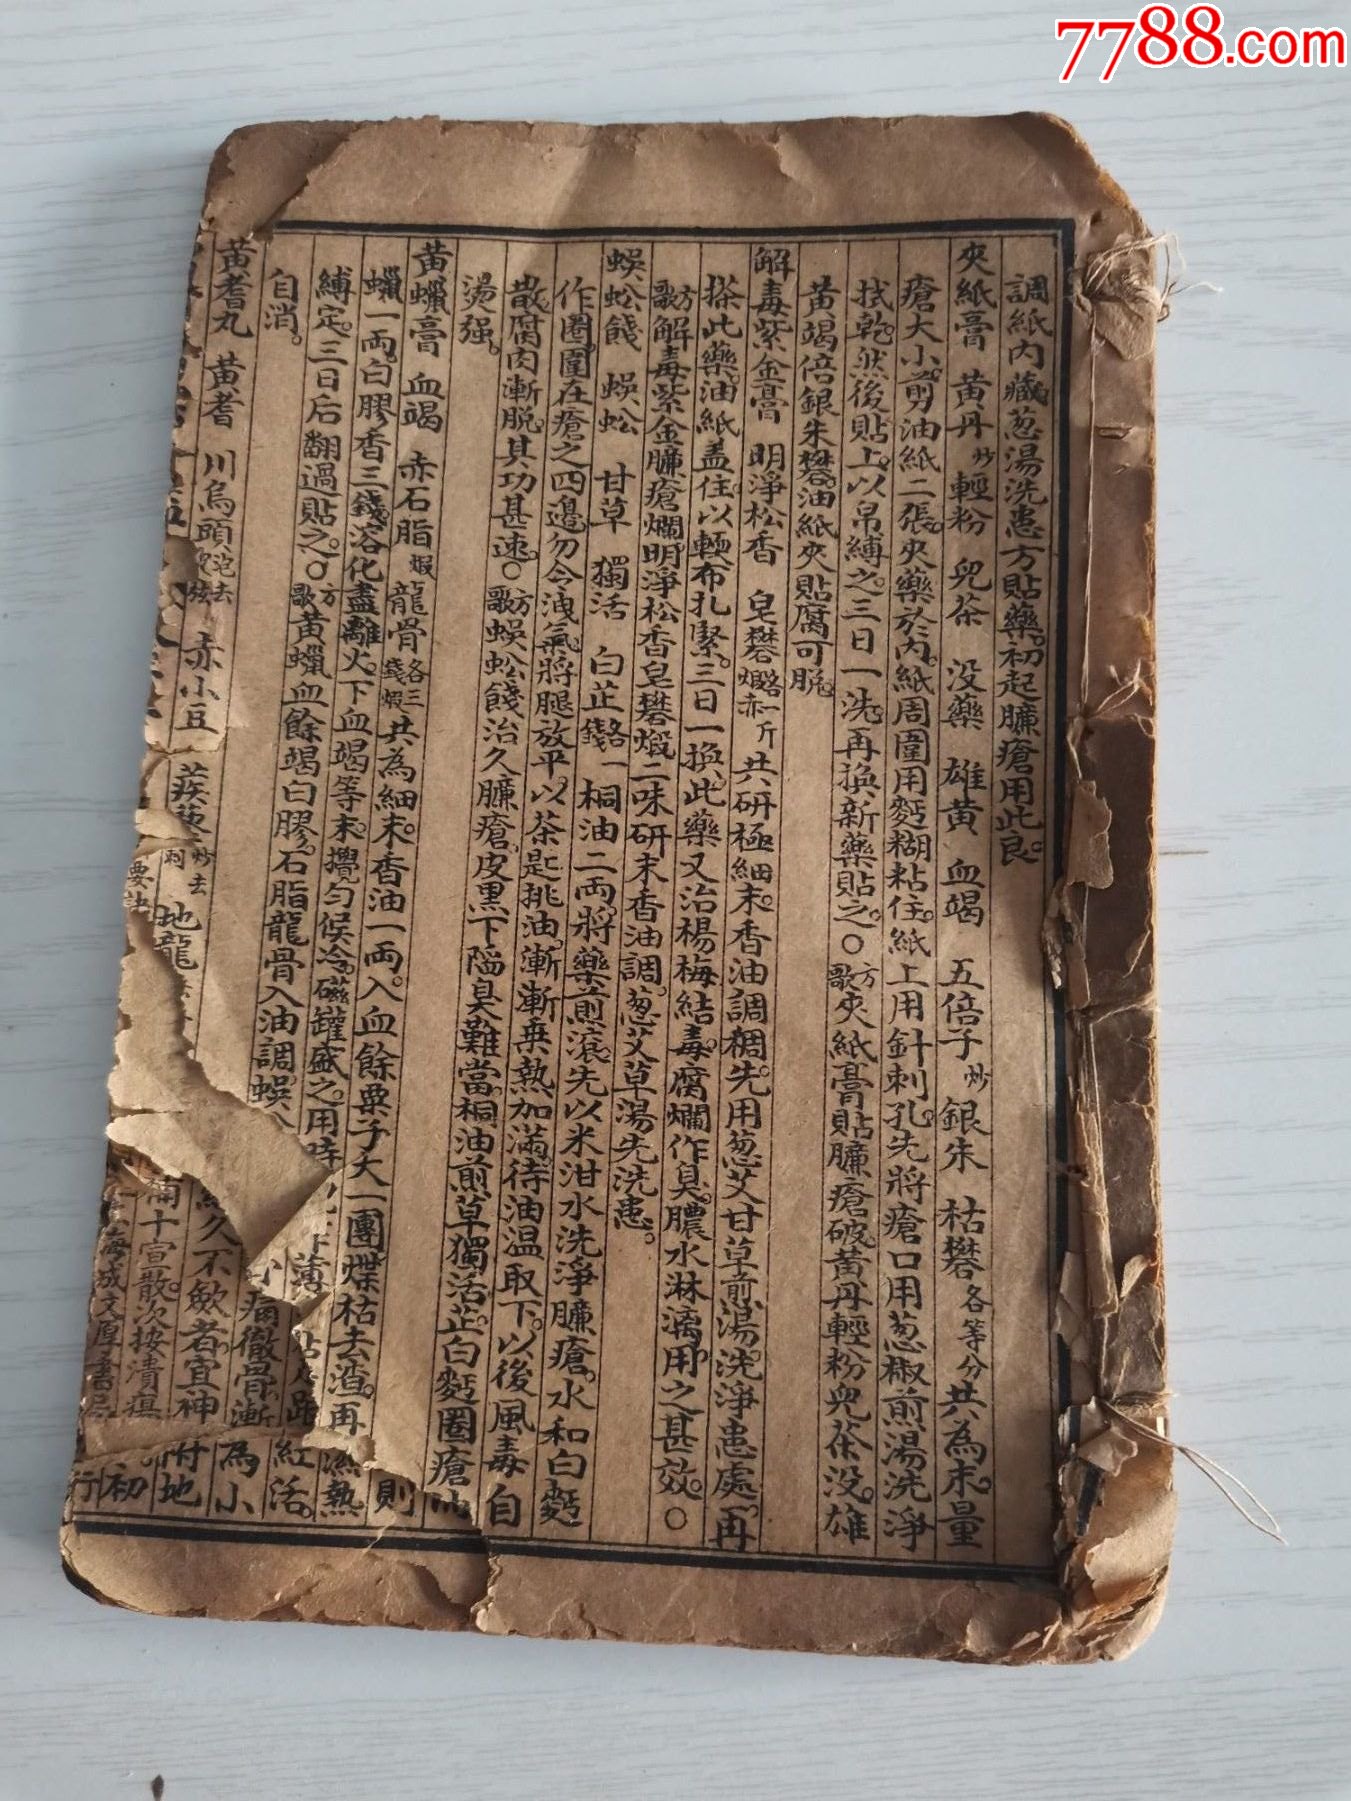 7788.com
調紙內藏葱湯洗患方貼藥初起臁瘡用此良
夾紙膏 黃丹炒 輕粉 兒茶 沒藥 雄黃 血竭 五倍子炒 銀朱 枯礬各等分 共為末量
瘡大小剪油紙二張夾藥於內紙周圍用麫糊粘住紙上用針刺孔先將瘡口用葱椒煎湯洗淨
拭乾然後貼上以帛縛之三日一洗再換新藥貼之○方歌 夾紙膏貼臁瘡破黃丹輕粉兒茶沒雄
黃竭倍銀朱礬油紙夾貼腐可脫
解毒紫金膏 明淨松香 皂礬煅赤各一斤 共研極細末香油調稠先用葱艾甘草煎湯洗淨患處再
搽此藥油紙盖住以軟布扎緊三日一換此藥又治楊梅結毒腐爛作臭膿水淋漓用之甚效○
方歌 解毒紫金臁瘡爛明淨松香皂礬煅二味研末香油調葱艾草湯先洗患
蜈蚣餞 蜈蚣 甘草 獨活 白芷各一錢 桐油二兩將藥煎滾先以米泔水洗淨臁瘡水和白麫
作圈圍在瘡之四邊勿令洩氣將腿放平以茶匙挑油漸漸乘熱加滿待油溫取下以後風毒自
散腐肉漸脫其功甚速○方歌 蜈蚣餞治久臁瘡皮黑下陷臭難當桐油煎草獨活芷白麫圈瘡油
燙强
黃蠟膏 血竭 赤石脂煅 龍骨煅各三錢 共為細末香油一兩入血餘栗子大一團煠枯去渣再
蠟一兩白膠香三錢溶化盡離火下血竭等末攪勻候冷磁罐盛之用時
縛定三日后翻過貼之○方歌 黃蠟血餘竭白膠石脂龍骨入油調蜈
自消
黃耆丸 黃耆 川烏頭 赤小豆 蒺藜 地龍